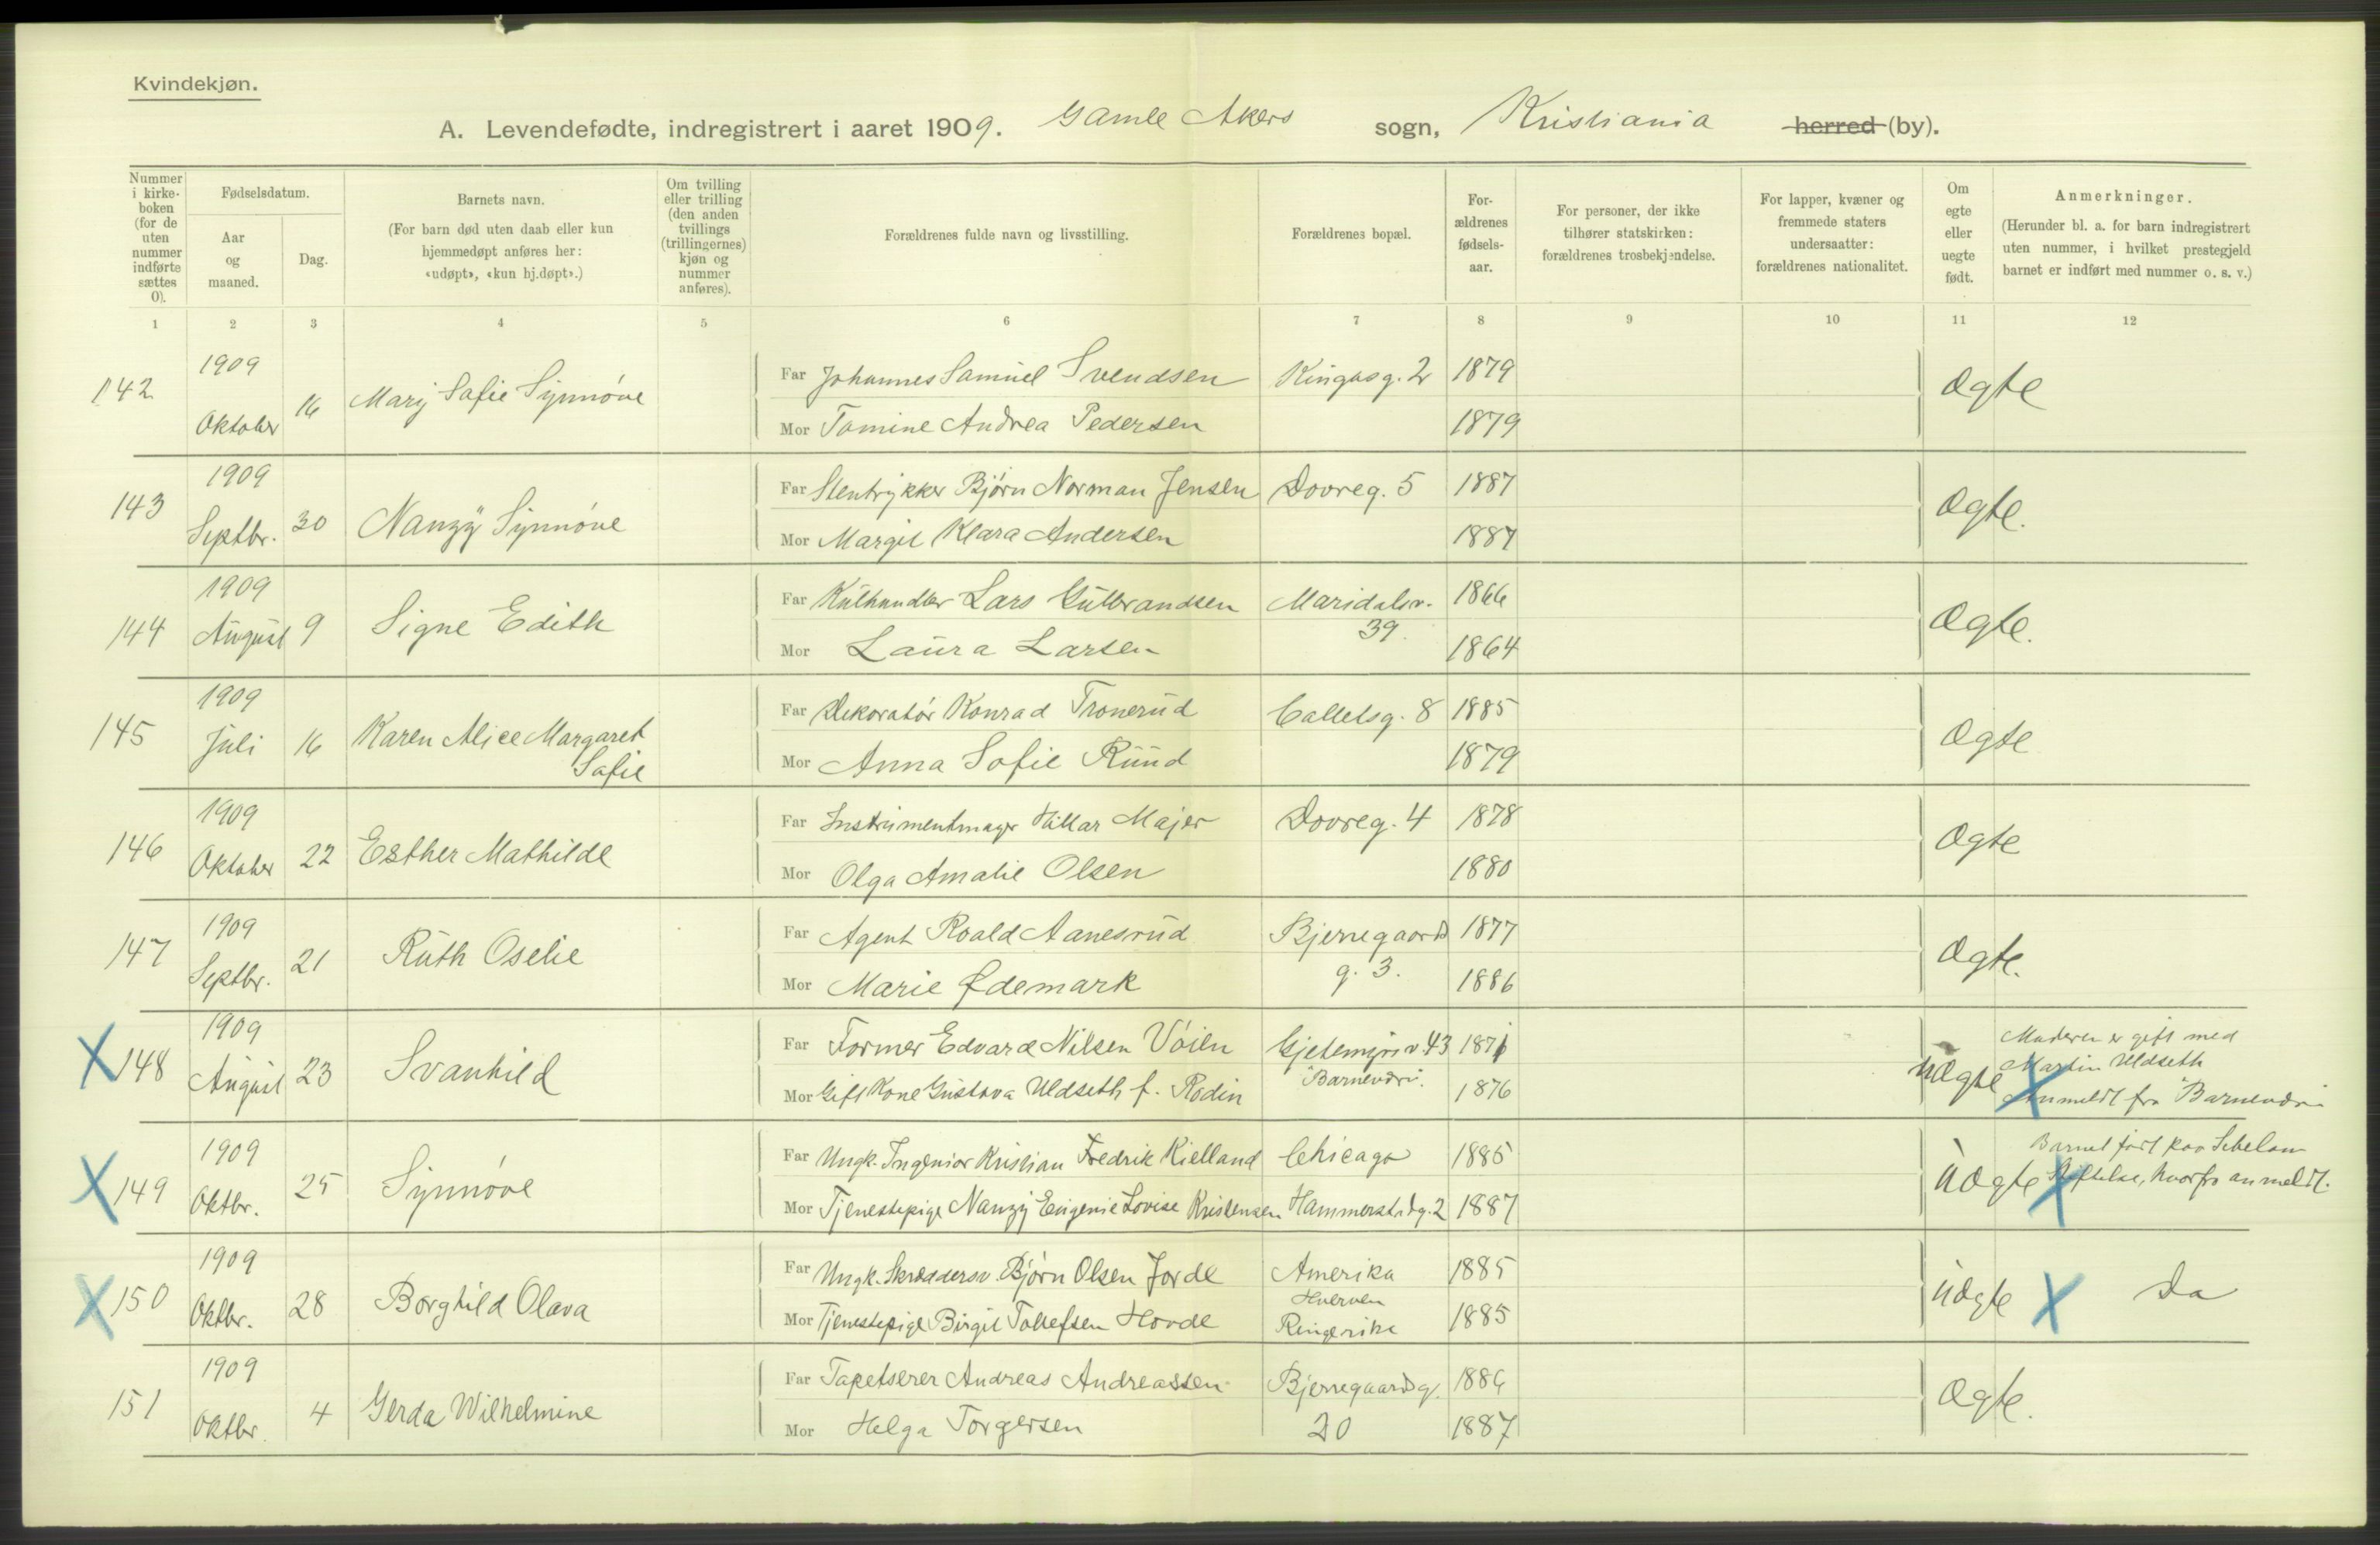 Kvindekjøn.
A. Levendefødte, indregistrert i aaret 1909. Gamle Akers sogn, Kristiania herred (by).
Nummer i kirke-boken (for de uten nummer indførte sættes 0).
Fødselsdatum.
Aar og maaned.
Dag.
Barnets navn.
(For barn død uten daab eller kun hjemmedøpt anføres her: «udøpt», «kun hj.døpt».)
Om tvilling eller trilling (den anden tvillings (trillingernes) kjøn og nummer anføres).
Forældrenes fulde navn og livsstilling.
Forældrenes bopæl.
For-ældrenes fødsels-aar.
For personer, der ikke tilhører statskirken: forældrenes trosbekjendelse.
For lapper, kvæner og fremmede staters undersaatter: forældrenes nationalitet.
Om egte eller uegte født.
Anmerkninger.
(Herunder bl. a. for barn indregistrert uten nummer, i hvilket prestegjeld barnet er indført med nummer o. s. v.)
1 2 3 4 5 6 7 8 9 10 11 12
142 1909 Oktober 16 Mary Sofie Synnöve
Far Johannes Samuel Svendsen Kingosg. 2 1879 Ægte
Mor Tomine Andrea Pedersen 1879
143 1909 Septbr. 30 Nanzy Synnöve
Far Stentrykker Björn Norman Jensen Dovreg. 5 1887 Ægte.
Mor Margit Klara Andersen 1887
144 1909 August 9 Signe Edith
Far Kulhandler Lars Gulbrandsen Maridalsv. 39. 1866 Ægte.
Mor Laura Larsen 1864
145 1909 Juli 16 Karen Alice Margaret Sofie
Far Dekoratör Konrad Tronerud Colletsg. 8 1885 Ægte
Mor Anna Sofie Ruud 1879
146 1909 Oktober 22 Esther Mathilde
Far Instrumentmager Majer Dovreg. 4 1878 Ægte
Mor Olga Amalie Olsen 1880
147 1909 Septbr. 21 Ruth Oselie
Far Agent Roald Aanesrud Bjerregaards g. 3. 1877 Ægte.
Mor Marie Ødemark 1886
X 148 1909 August 23 Svanhild
Far Former Edvard Nilsen Vöien Gjetemyrsv. 43 1871 Uægte X Moderen er gift med Martin Uldseth
Mor Gift Kone Gustava Uldseth f. Rodin "Barneværn". 1876 Anmeldt fra "Barneværn
X 149 1909 Oktbr. 25 Synnöve
Far Ungk. Ingeniör Kristian Fredrik Kielland Chicago 1885 Uægte X Barnet født paa
Mor Tjenestepige Nanzy Eugenie Lovise Kristensen Hammerstadg. 2 1887 Stiftelse, hvorfra anmeldt.
X 150 1909 Oktbr. 28 Borghild Olava
Far Ungk. Skræddersv. Björn Olsen Jorde Amerika 1885 Uægte X Do
Mor Tjenestepige Birgit Tollefsen Hovde Hverven Ringerike 1885
151 1909 Oktbr. 4 Gerda Wilhelmine
Far Tapetserer Andreas Andreassen Bjerregaardsg. 20 1886 Ægte.
Mor Helga Torgersen 1887